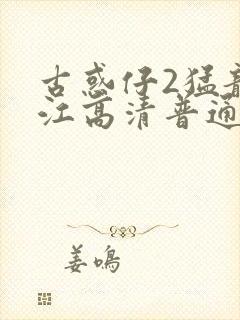 古惑仔2猛龍
江高清普通
姜鸣